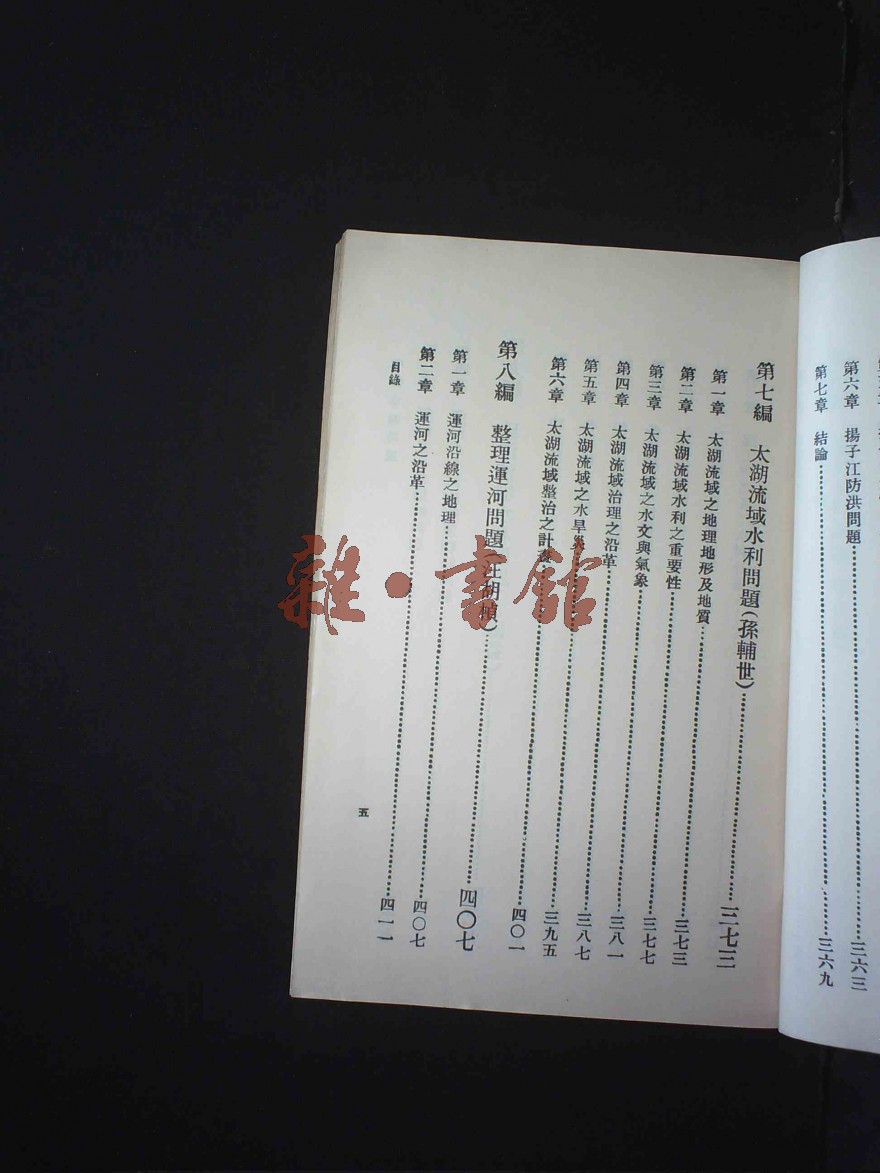 第六章 揚子江防洪問題……三六三
第七章 結論……三六九
第七編 太湖流域水利問題(孫輔世)……三七三
第一章 太湖流域之地理地形及地質……三七三
第二章 太湖流域水利之重要性……三七七
第三章 太湖流域之水文與氣象……三八一
第四章 太湖流域治理之沿革……三八七
第五章 太湖流域之水旱災……三九五
第六章 太湖流域整治之計畫……四〇一
第八編 整理運河問題(汪胡楨)……四〇七
第一章 運河沿線之地理……四〇七
第二章 運河之沿革……四一一
目錄
五
雜·書館